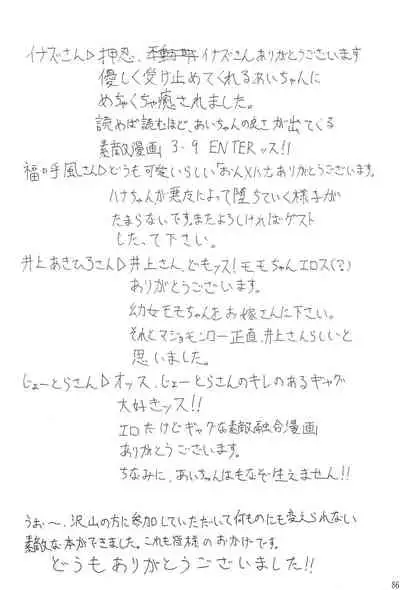 イナズさん▷押忍、イナズさんありがとうございます
優しく受け止めてくれるあいちゃんに
めちゃくちゃ癒されました。
読めば読むほど、あいちゃんの良さが出てくる
素敵漫画 3-9 ENTERッス!!
風さん▷どうも可愛いらしい「おんXハナ」ありがとうございます。
ハナちゃんが悪友によって堕ちていく様子が
たまらないです。またよろしければゲスト
して下さい。
井上あきひろさん▷井上さん、どもッス!モモちゃんエロス(?)
ありがとうございます。
幼女モモちゃんをお嫁さんに下さい。
それとマジョモンロー正直、井上さんらしいと
思いました。
じょーとらさん▷オッス、じょーとらさんのキレのあるギャグ
大好きッス!!
エロだけどギャグな素敵融合漫画
ありがとうございます。
ちなみに、あいちゃんは生えません!!
うぉ〜、沢山の方に参加していただいて何ものにも変えられない
素敵な本ができました。これも皆様のおかげです。
どうもありがとうございました!!
86